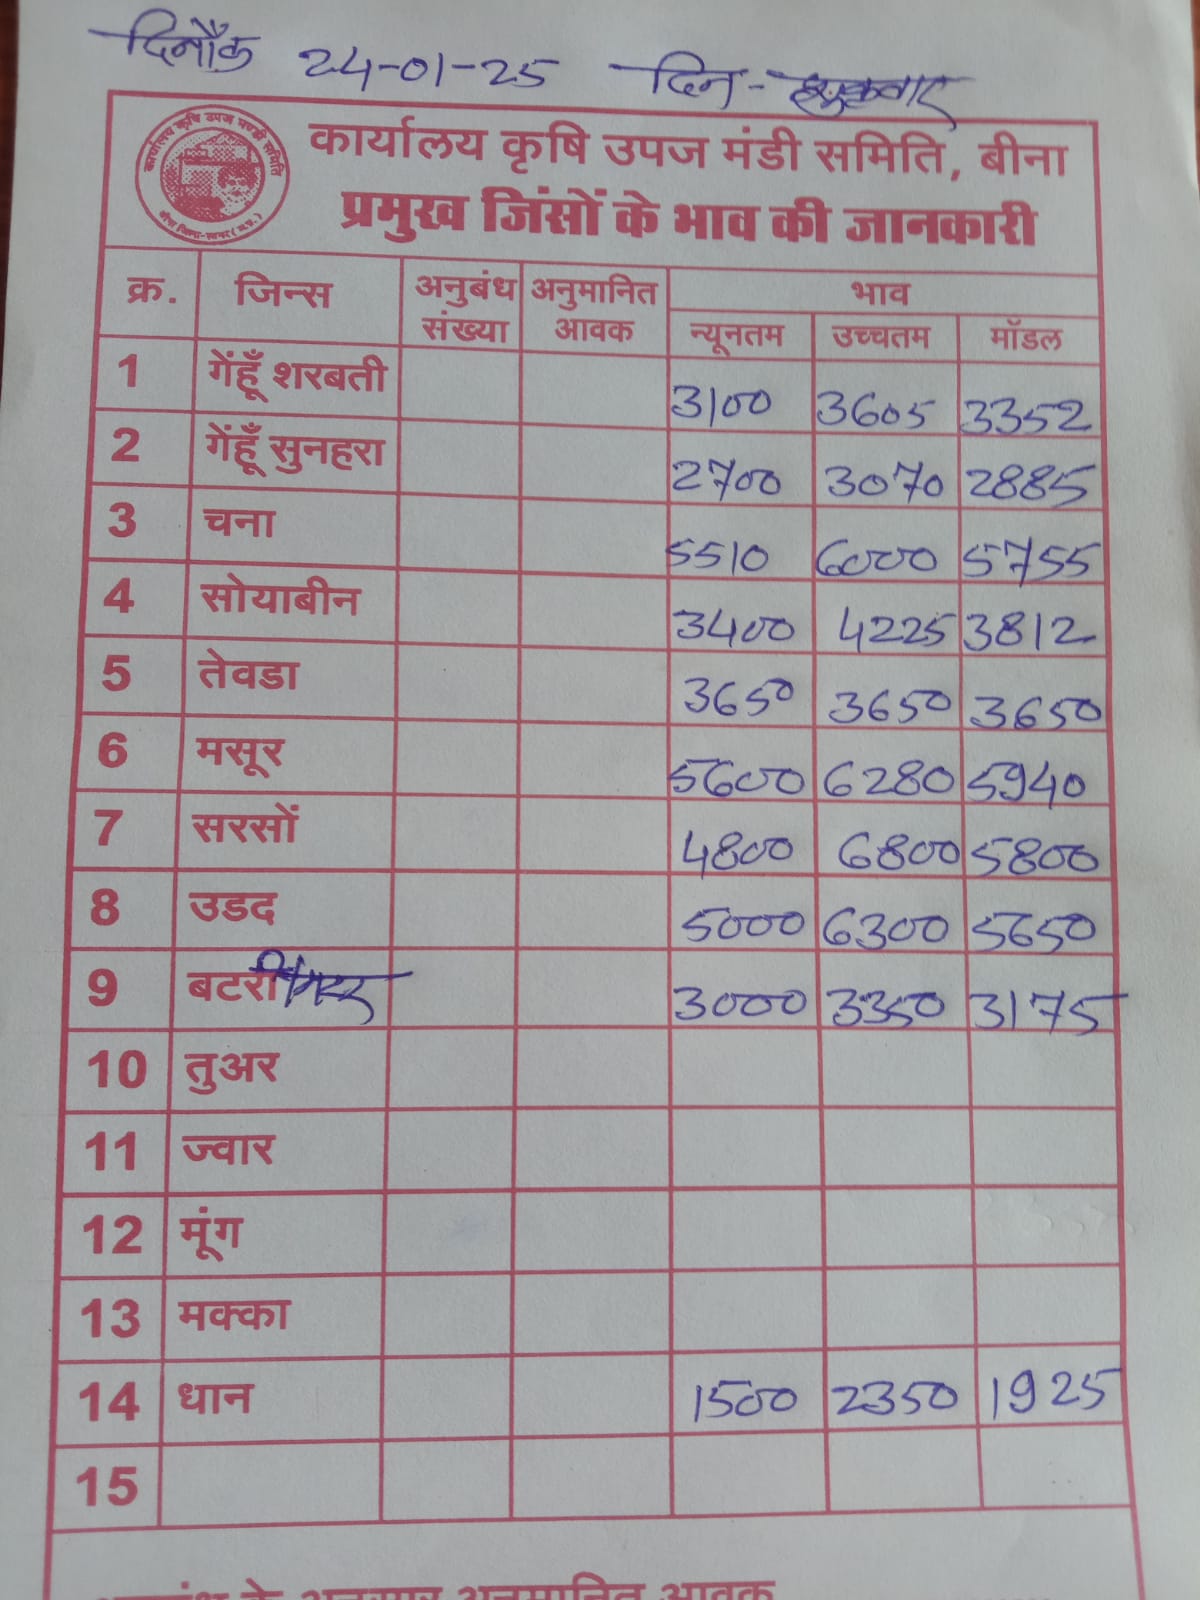 दिनाँक 24-01-25 दिन - शुक्रवार
कार्यालय कृषि उपज मंडी समिति, बीना
प्रमुख जिंसों के भाव की जानकारी
क्र. जिन्स अनुबंध संख्या अनुमानित आवक भाव
न्यूनतम उच्चतम मॉडल
1 गेंहूँ शरबती 3100 3605 3352
2 गेंहूँ सुनहरा 2700 3070 2885
3 चना 5510 6000 5755
4 सोयाबीन 3400 4225 3812
5 तेवडा 3650 3650 3650
6 मसूर 5600 6280 5940
7 सरसों 4800 6800 5800
8 उडद 5000 6300 5650
9 बटरी 3000 3350 3175
10 तुअर
11 ज्वार
12 मूंग
13 मक्का
14 धान 1500 2350 1925
15
के अनुसार अनुमानित आवक